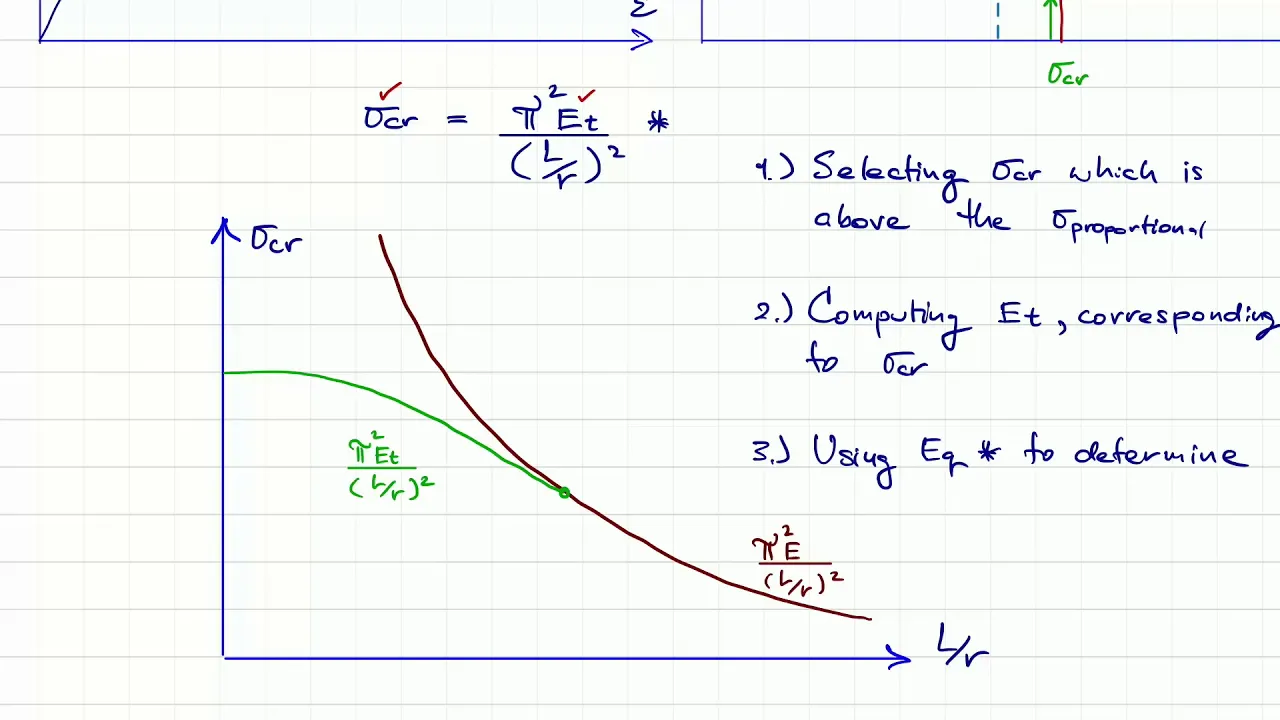 ε
σcr
σcr = π² Et / (L/r)² *
1.) Selecting σcr which is
above the σproportional
σcr
2.) Computing Et, corresponding
to σcr
π² Et / (L/r)²
3.) Using Eq * to determine
π² E / (L/r)²
L/r